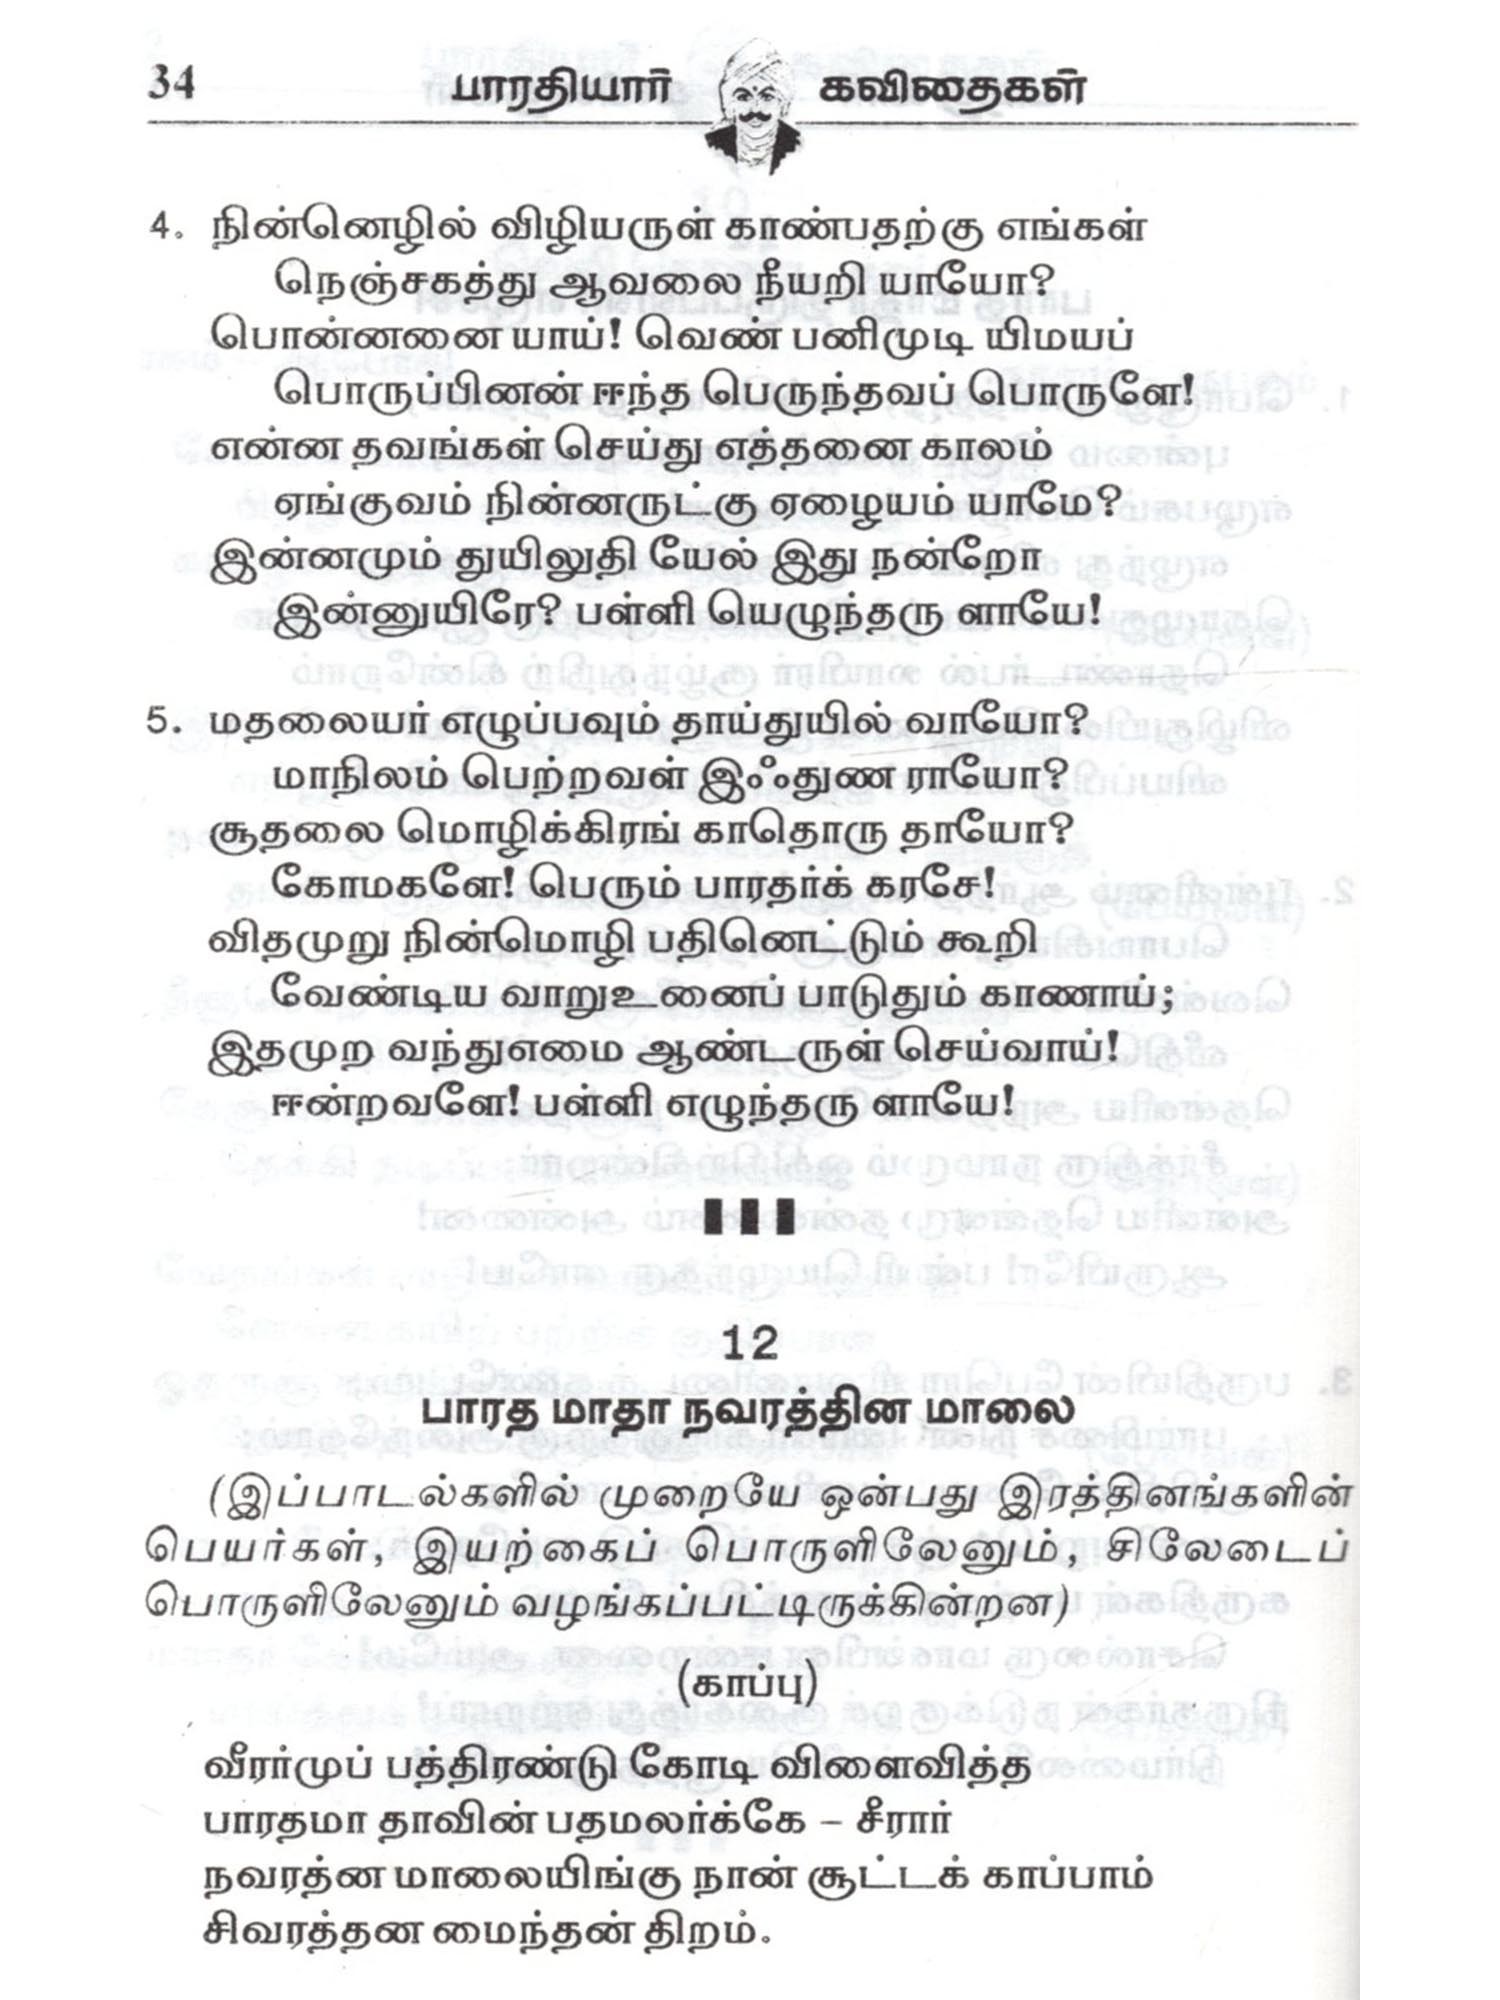 34 பாரதியார் கவிதைகள்
4. நின்னெழில் விழியருள் காண்பதற்கு எங்கள்
நெஞ்சகத்து ஆவலை நீயறி யாயோ?
பொன்னனை யாய்! வெண் பனிமுடி யிமயப்
பொருப்பினன் ஈந்த பெருந்தவப் பொருளே!
என்ன தவங்கள் செய்து எத்தனை காலம்
ஏங்குவம் நின்னருட்கு ஏழையம் யாமே?
இன்னமும் துயிலுதி யேல் இது நன்றோ
இன்னுயிரே? பள்ளி யெழுந்தரு ளாயே!
5. மதலையர் எழுப்பவும் தாய்துயில் வாயோ?
மாநிலம் பெற்றவள் இஃதுண ராயோ?
சூதலை மொழிக்கிரங் காதொரு தாயோ?
கோமகளே! பெரும் பாரதர்க் கரசே!
விதமுறு நின்மொழி பதினெட்டும் கூறி
வேண்டிய வாறுஉனைப் பாடுதும் காணாய்;
இதமுற வந்துஎமை ஆண்டருள் செய்வாய்!
ஈன்றவளே! பள்ளி எழுந்தரு ளாயே!
12
பாரத மாதா நவரத்தின மாலை
(இப்பாடல்களில் முறையே ஒன்பது இரத்தினங்களின்
பெயர்கள், இயற்கைப் பொருளிலேனும், சிலேடைப்
பொருளிலேனும் வழங்கப்பட்டிருக்கின்றன)
(காப்பு)
வீரர்முப் பத்திரண்டு கோடி விளைவித்த
பாரதமா தாவின் பதமலர்க்கே – சீரார்
நவரத்ன மாலையிங்கு நான் சூட்டக் காப்பாம்
சிவரத்தன மைந்தன் திறம்.